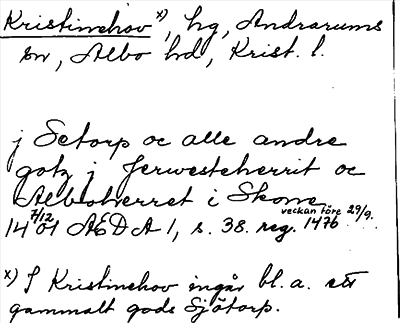 Kristinehov x), hg, Andrarums
sn, Albo hd, Krist. l.
j Setorp oc alle andre
gotz j Jerwesteherrit oc
Alboherret i Skone
7/12 1401 ÆDA 1, s. 38. reg. veckan före 29/9. 1476
x) I Kristinehov ingår bl. a. ett
gammalt gods Sjötorp.